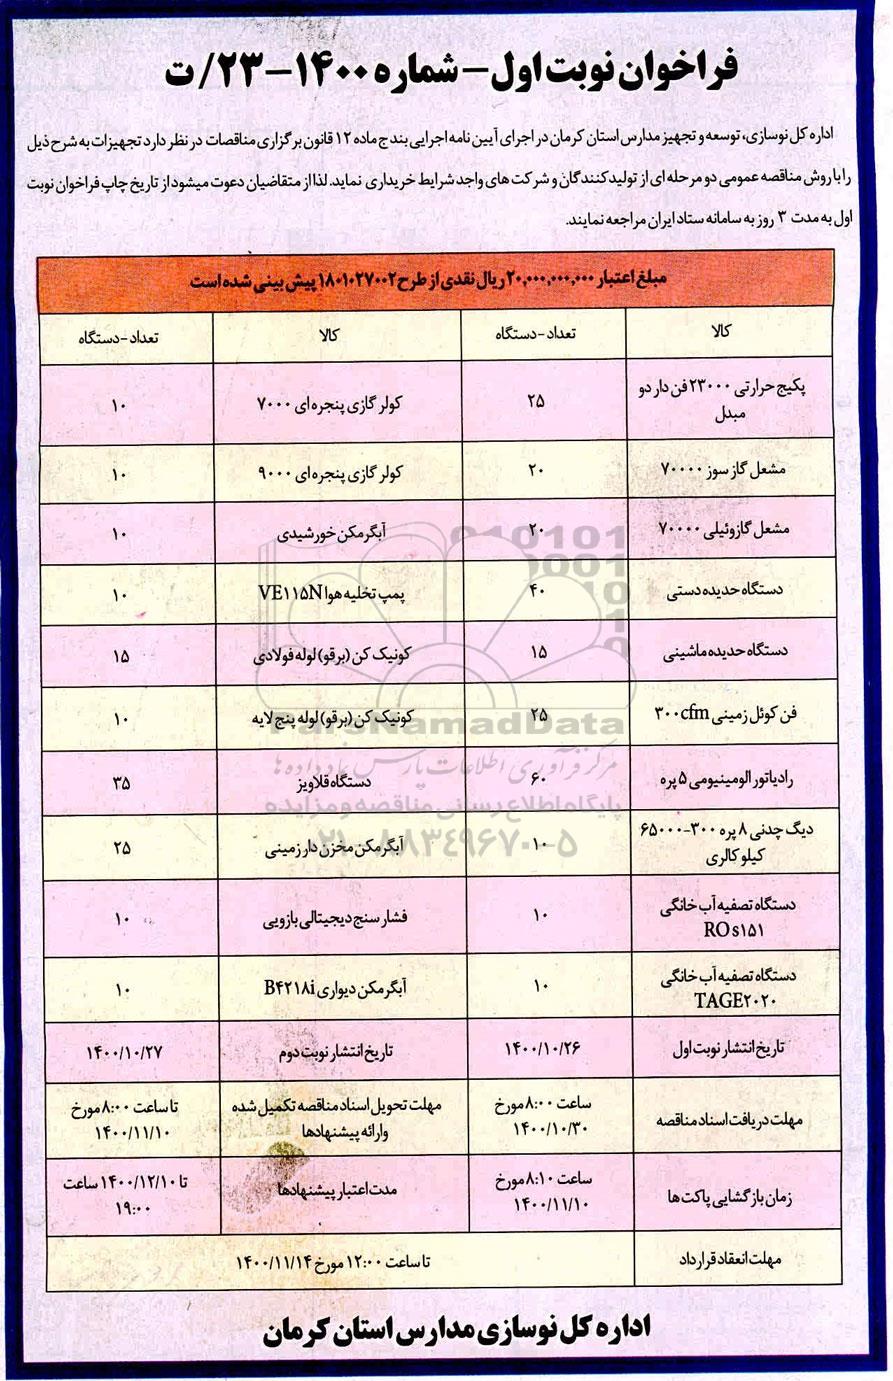 فراخوان نوبت اول - شماره ۱۴۰۰-۲۳/ت
اداره کل نوسازی، توسعه و تجهیز مدارس استان کرمان در اجرای آیین نامه اجرایی بند ج ماده ۱۲ قانون برگزاری مناقصات در نظر دارد تجهیزات به شرح ذیل
را با روش مناقصه عمومی دو مرحله ای از تولید کنندگان و شرکت های واجد شرایط خریداری نماید. لذا از متقاضیان دعوت میشود از تاریخ چاپ فراخوان نوبت
اول به مدت ۳ روز به سامانه ستاد ایران مراجعه نمایند.
مبلغ اعتبار ۲۰,۰۰۰,۰۰۰,۰۰۰ ریال نقدی از طرح ۱۸۰۱۰۲۷۰۰۲ پیش بینی شده است
کالا تعداد - دستگاه کالا تعداد - دستگاه
پکیج حرارتی ۲۳۰۰۰ فن دار دو
مبدل ۲۵ کولر گازی پنجره ای ۷۰۰۰ ۱۰
مشعل گاز سوز ۷۰۰۰۰ ۲۰ کولر گازی پنجره ای ۹۰۰۰ ۱۰
مشعل گازوئیلی ۷۰۰۰۰ ۲۰ آبگرمکن خورشیدی ۱۰
دستگاه حدیده دستی ۴۰ پمپ تخلیه هوا VE۱۱۵N ۱۰
دستگاه حدیده ماشینی ۱۵ کونیک کن (برقو) لوله فولادی ۱۵
فن کوئل زمینی ۳۰۰cfm ۲۵ کونیک کن (برقو) لوله پنج لایه ۱۰
رادیاتور الومینیومی ۵ پره ۶۰ دستگاه قلاویز ۳۵
دیگ چدنی ۸ پره ۳۰۰-۶۵۰۰۰
کیلو کالری ۱۰ آبگرمکن مخزن دار زمینی ۲۵
دستگاه تصفیه آب خانگی
ROs۱۵۱ ۱۰ فشار سنج دیجیتالی بازویی ۱۰
دستگاه تصفیه آب خانگی
TAGE۲۰۲۰ ۱۰ آبگرمکن دیواری B۴۲۱۸i ۱۰
تاریخ انتشار نوبت اول ۱۴۰۰/۱۰/۲۶ تاریخ انتشار نوبت دوم ۱۴۰۰/۱۰/۲۷
مهلت دریافت اسناد مناقصه ساعت ۸:۰۰ مورخ
۱۴۰۰/۱۰/۳۰ مهلت تحویل اسناد مناقصه تکمیل شده
وارائه پیشنهادها تا ساعت ۸:۰۰ مورخ
۱۴۰۰/۱۱/۱۰
زمان بازگشایی پاکت ها ساعت ۸:۱۰ مورخ
۱۴۰۰/۱۱/۱۰ مدت اعتبار پیشنهادها تا ۱۴۰۰/۱۲/۱۰ ساعت
۱۹:۰۰
مهلت انعقاد قرارداد تا ساعت ۱۲:۰۰ مورخ ۱۴۰۰/۱۱/۱۴
اداره کل نوسازی مدارس استان کرمان
ParsNamadData
مرکز فرآوری اطلاعات پارس نماد داده ها
پایگاه اطلاع رسانی مناقصه و مزایده
۰۲۱-۸۸۳۴۹۶۷۰-۵